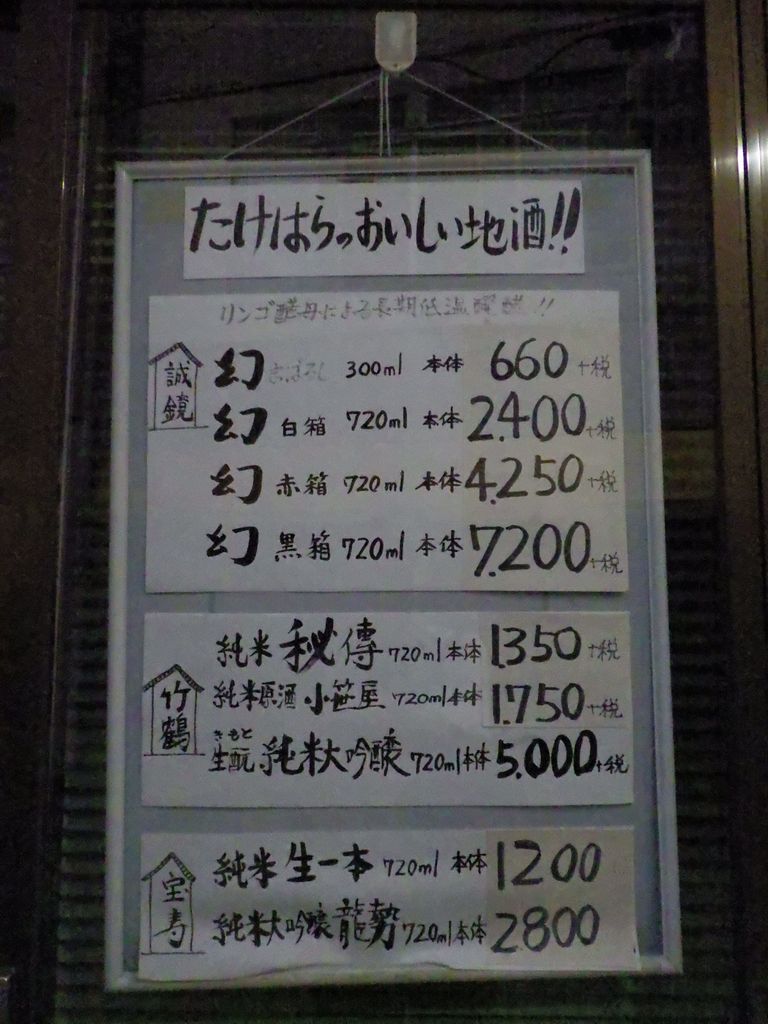 たけはらのおいしい地酒!!
リンゴ酵母による長期低温醗酵!!
誠鏡
幻 まぼろし 300ml 本体 660 +税
幻 白箱 720ml 本体 2.400 +税
幻 赤箱 720ml 本体 4.250 +税
幻 黒箱 720ml 本体 7.200 +税
竹鶴
純米 秘傳 720ml 本体 1.350 +税
純米原酒 小笹屋 720ml 本体 1.750 +税
きもと
生酛 純米大吟醸 720ml 本体 5.000 +税
宝寿
純米 生一本 720ml 本体 1200
純米大吟醸 龍勢 720ml 本体 2.800